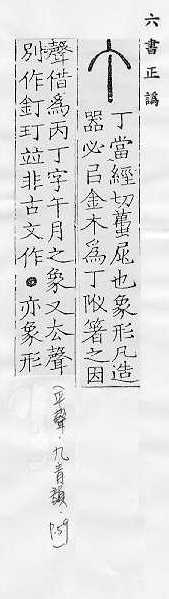 六書正譌
丁當經切蠆尾也象形凡造
器必㠯金木爲丁附箸之因
聲借爲丙丁字午月之象又去聲
別作釘玎竝非古文作●亦象形
(平聲·九青韻·P.59)